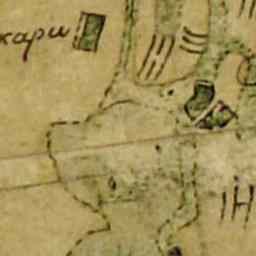 кари
ІН